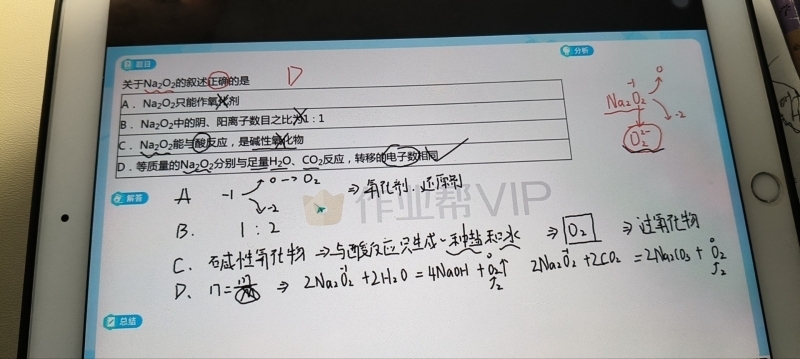 题目
分析
关于Na₂O₂的叙述正确的是 D
A．Na₂O₂只能作氧化剂
B．Na₂O₂中的阴、阳离子数目之比为1：1
C．Na₂O₂能与酸反应，是碱性氧化物
D．等质量的Na₂O₂分别与足量H₂O、CO₂反应，转移的电子数相同
-1 0
Na₂O₂ -2
O₂²⁻
解答
A -1 0→O₂ ⇒氧化剂、还原剂
-2
作业帮VIP
B. 1：2
C. 碱性氧化物⇒与酸反应只生成一种盐和水 ⇒ O₂ ⇒ 过氧化物
D. n=m/M ⇒ 2Na₂O₂+2H₂O=4NaOH+O₂↑ 2Na₂O₂+2CO₂=2Na₂CO₃+O₂
总结